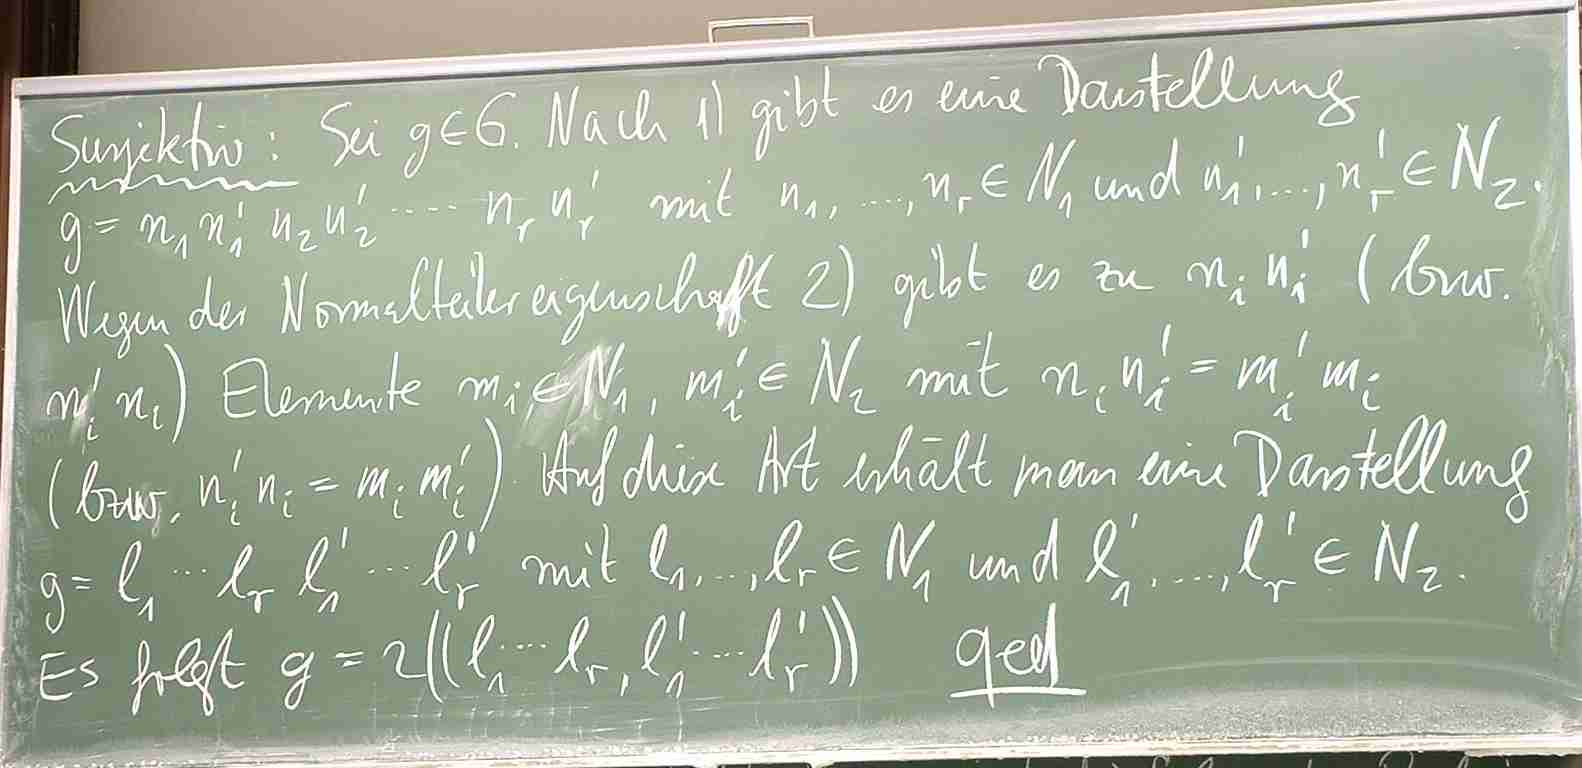 Surjektiv: Sei g∈G. Nach 1) gibt es eine Darstellung
g = n₁ n₁' n₂ n₂' ---- nᵣ nᵣ' mit n₁, ..., nᵣ ∈ N₁ und n₁', ..., nᵣ' ∈ N₂.
Wegen der Normalteilereigenschaft 2) gibt es zu nᵢ nᵢ' (bzw.
nᵢ' nᵢ) Elemente mᵢ ∈ N₁, mᵢ' ∈ N₂ mit nᵢ nᵢ' = mᵢ' mᵢ
(bzw. nᵢ' nᵢ = mᵢ mᵢ'). Auf diese Art erhält man eine Darstellung
g = l₁ ... lᵣ l₁' ... lᵣ' mit l₁, ..., lᵣ ∈ N₁ und l₁', ..., lᵣ' ∈ N₂.
Es folgt g = 2((l₁ ... lᵣ, l₁' ... lᵣ')) qed